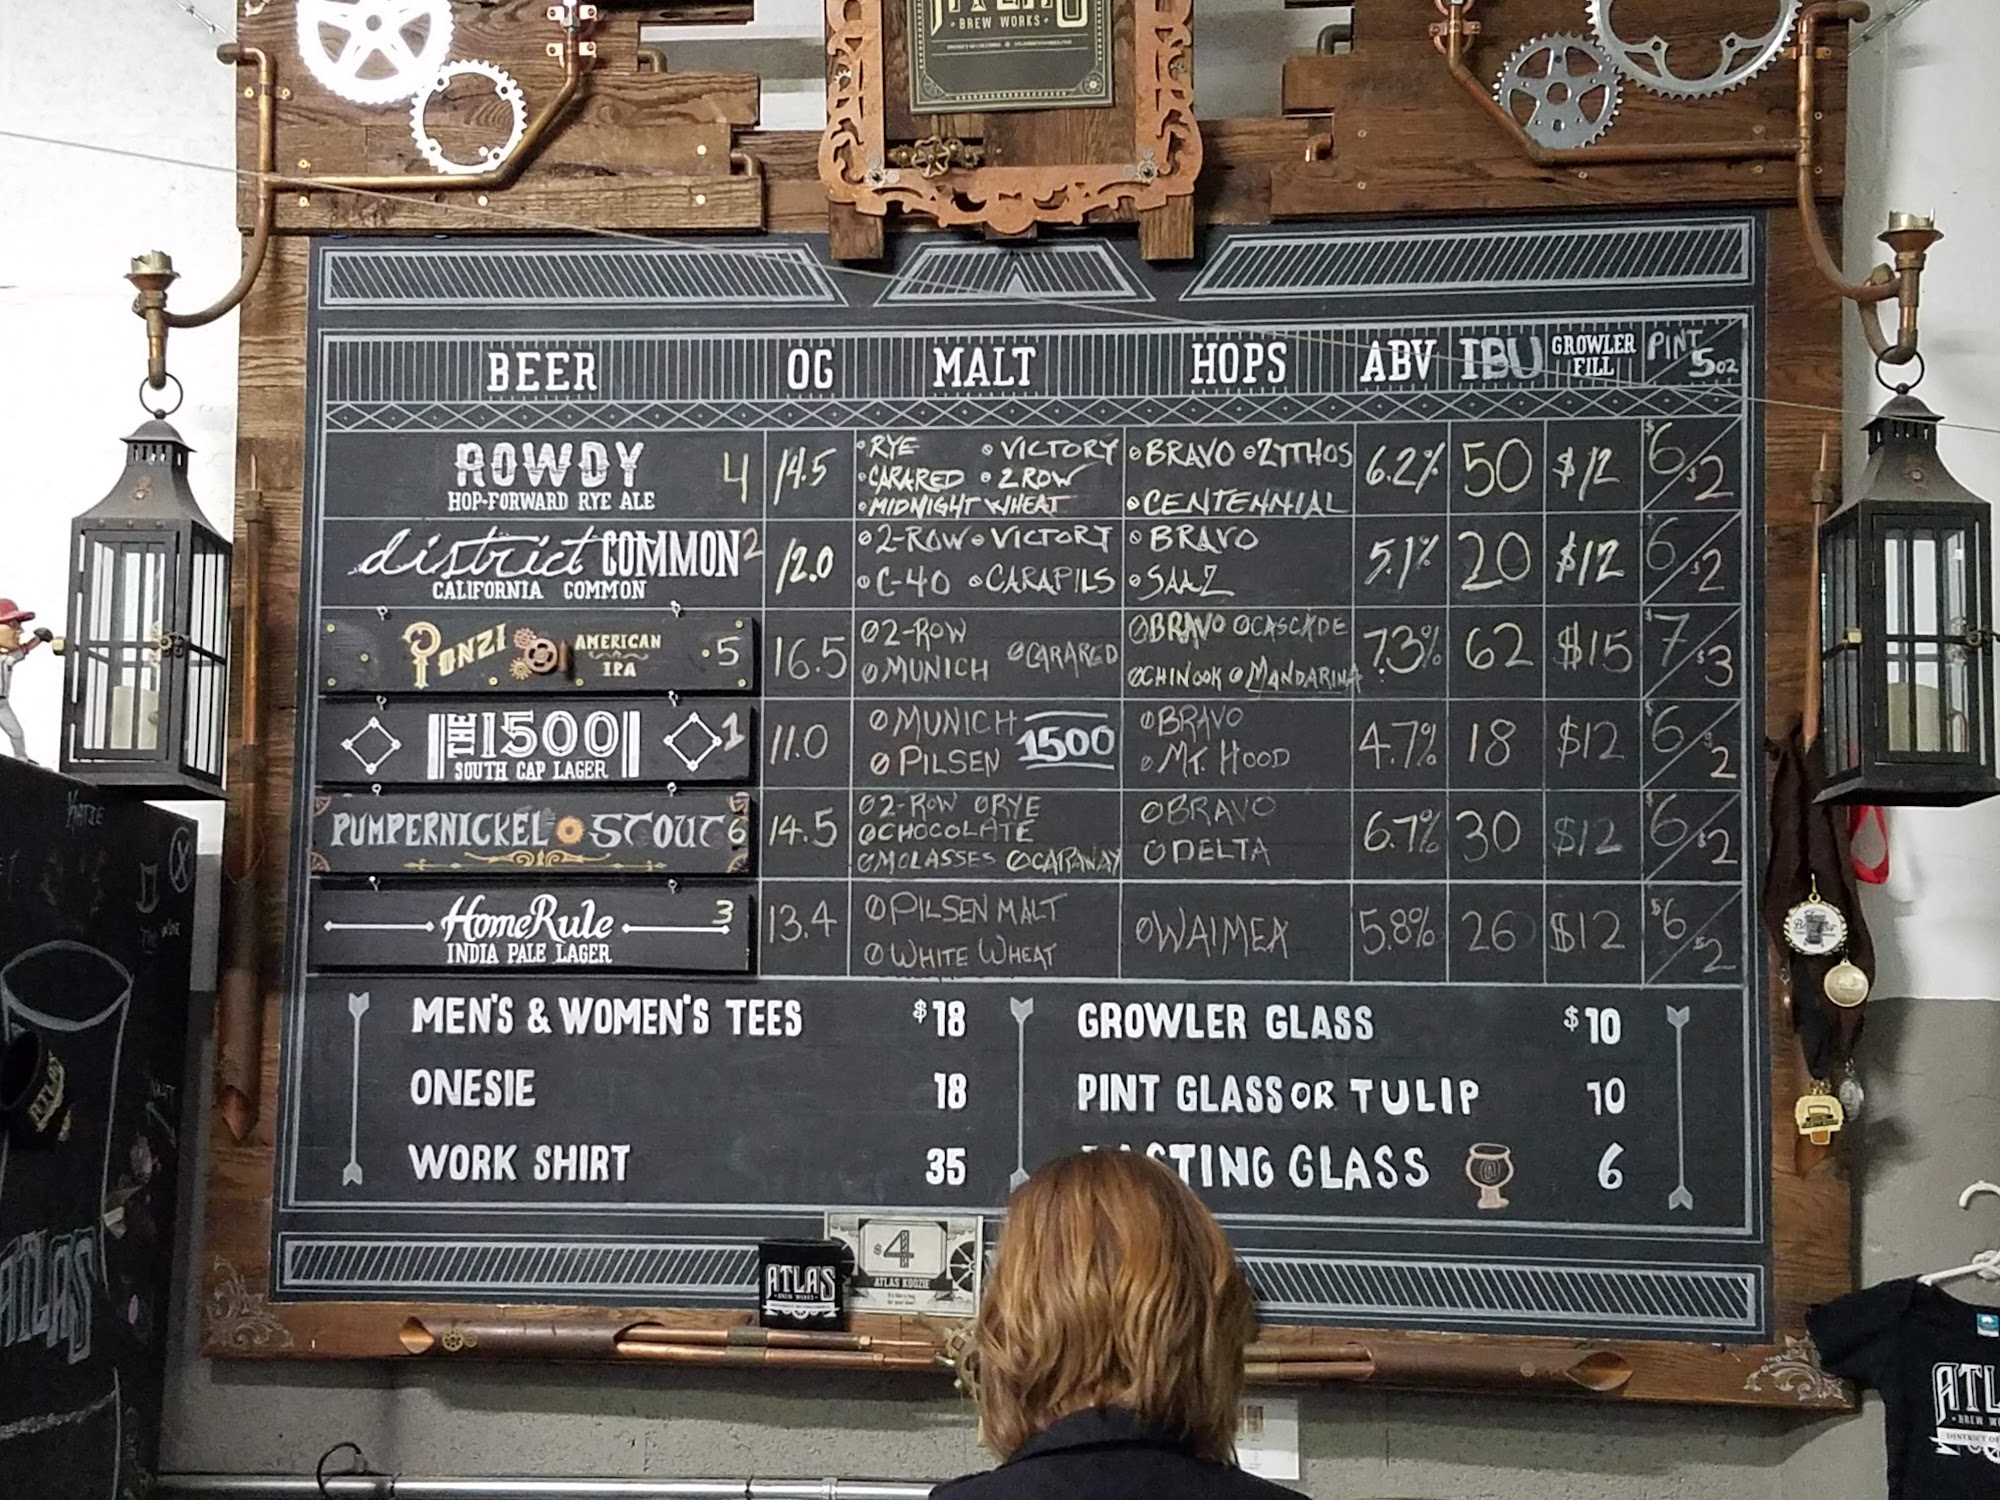 BREW WORKS
BEER OG MALT HOPS ABV IBU GROWLER FILL PINT 5oz
ROWDY 4 14.5 RYE VICTORY BRAVO ZYTHOS 6.2% 50 $12 $6 $2
HOP-FORWARD RYE ALE CARARED 2 ROW CENTENNIAL
MIDNIGHT WHEAT
district COMMON 2 12.0 2-ROW VICTORY BRAVO 5.1% 20 $12 6 $2
CALIFORNIA COMMON C-40 CARAPILS SAAZ
PONZI AMERICAN IPA 5 16.5 2-ROW CARARED BRAVO CASCADE 7.3% 62 $15 $7 $3
MUNICH CHINOOK MANDARINA
THE 1500 1 11.0 MUNICH 1500 BRAVO 4.7% 18 $12 $6 $2
SOUTH CAP LAGER PILSEN MT. HOOD
PUMPERNICKEL STOUT 6 14.5 2-ROW RYE BRAVO 6.7% 30 $12 $6 $2
CHOCOLATE DELTA
MOLASSES CARAWAY
HomeRule 3 13.4 PILSEN MALT WAIMEA 5.8% 26 $12 $6 $2
INDIA PALE LAGER WHITE WHEAT
MEN'S & WOMEN'S TEES $18 GROWLER GLASS $10
ONESIE 18 PINT GLASS OR TULIP 10
WORK SHIRT 35 GLASS 6
$4
ATLAS KOOZIE
ATLAS
BREW WORKS
KATIE
ATLAS